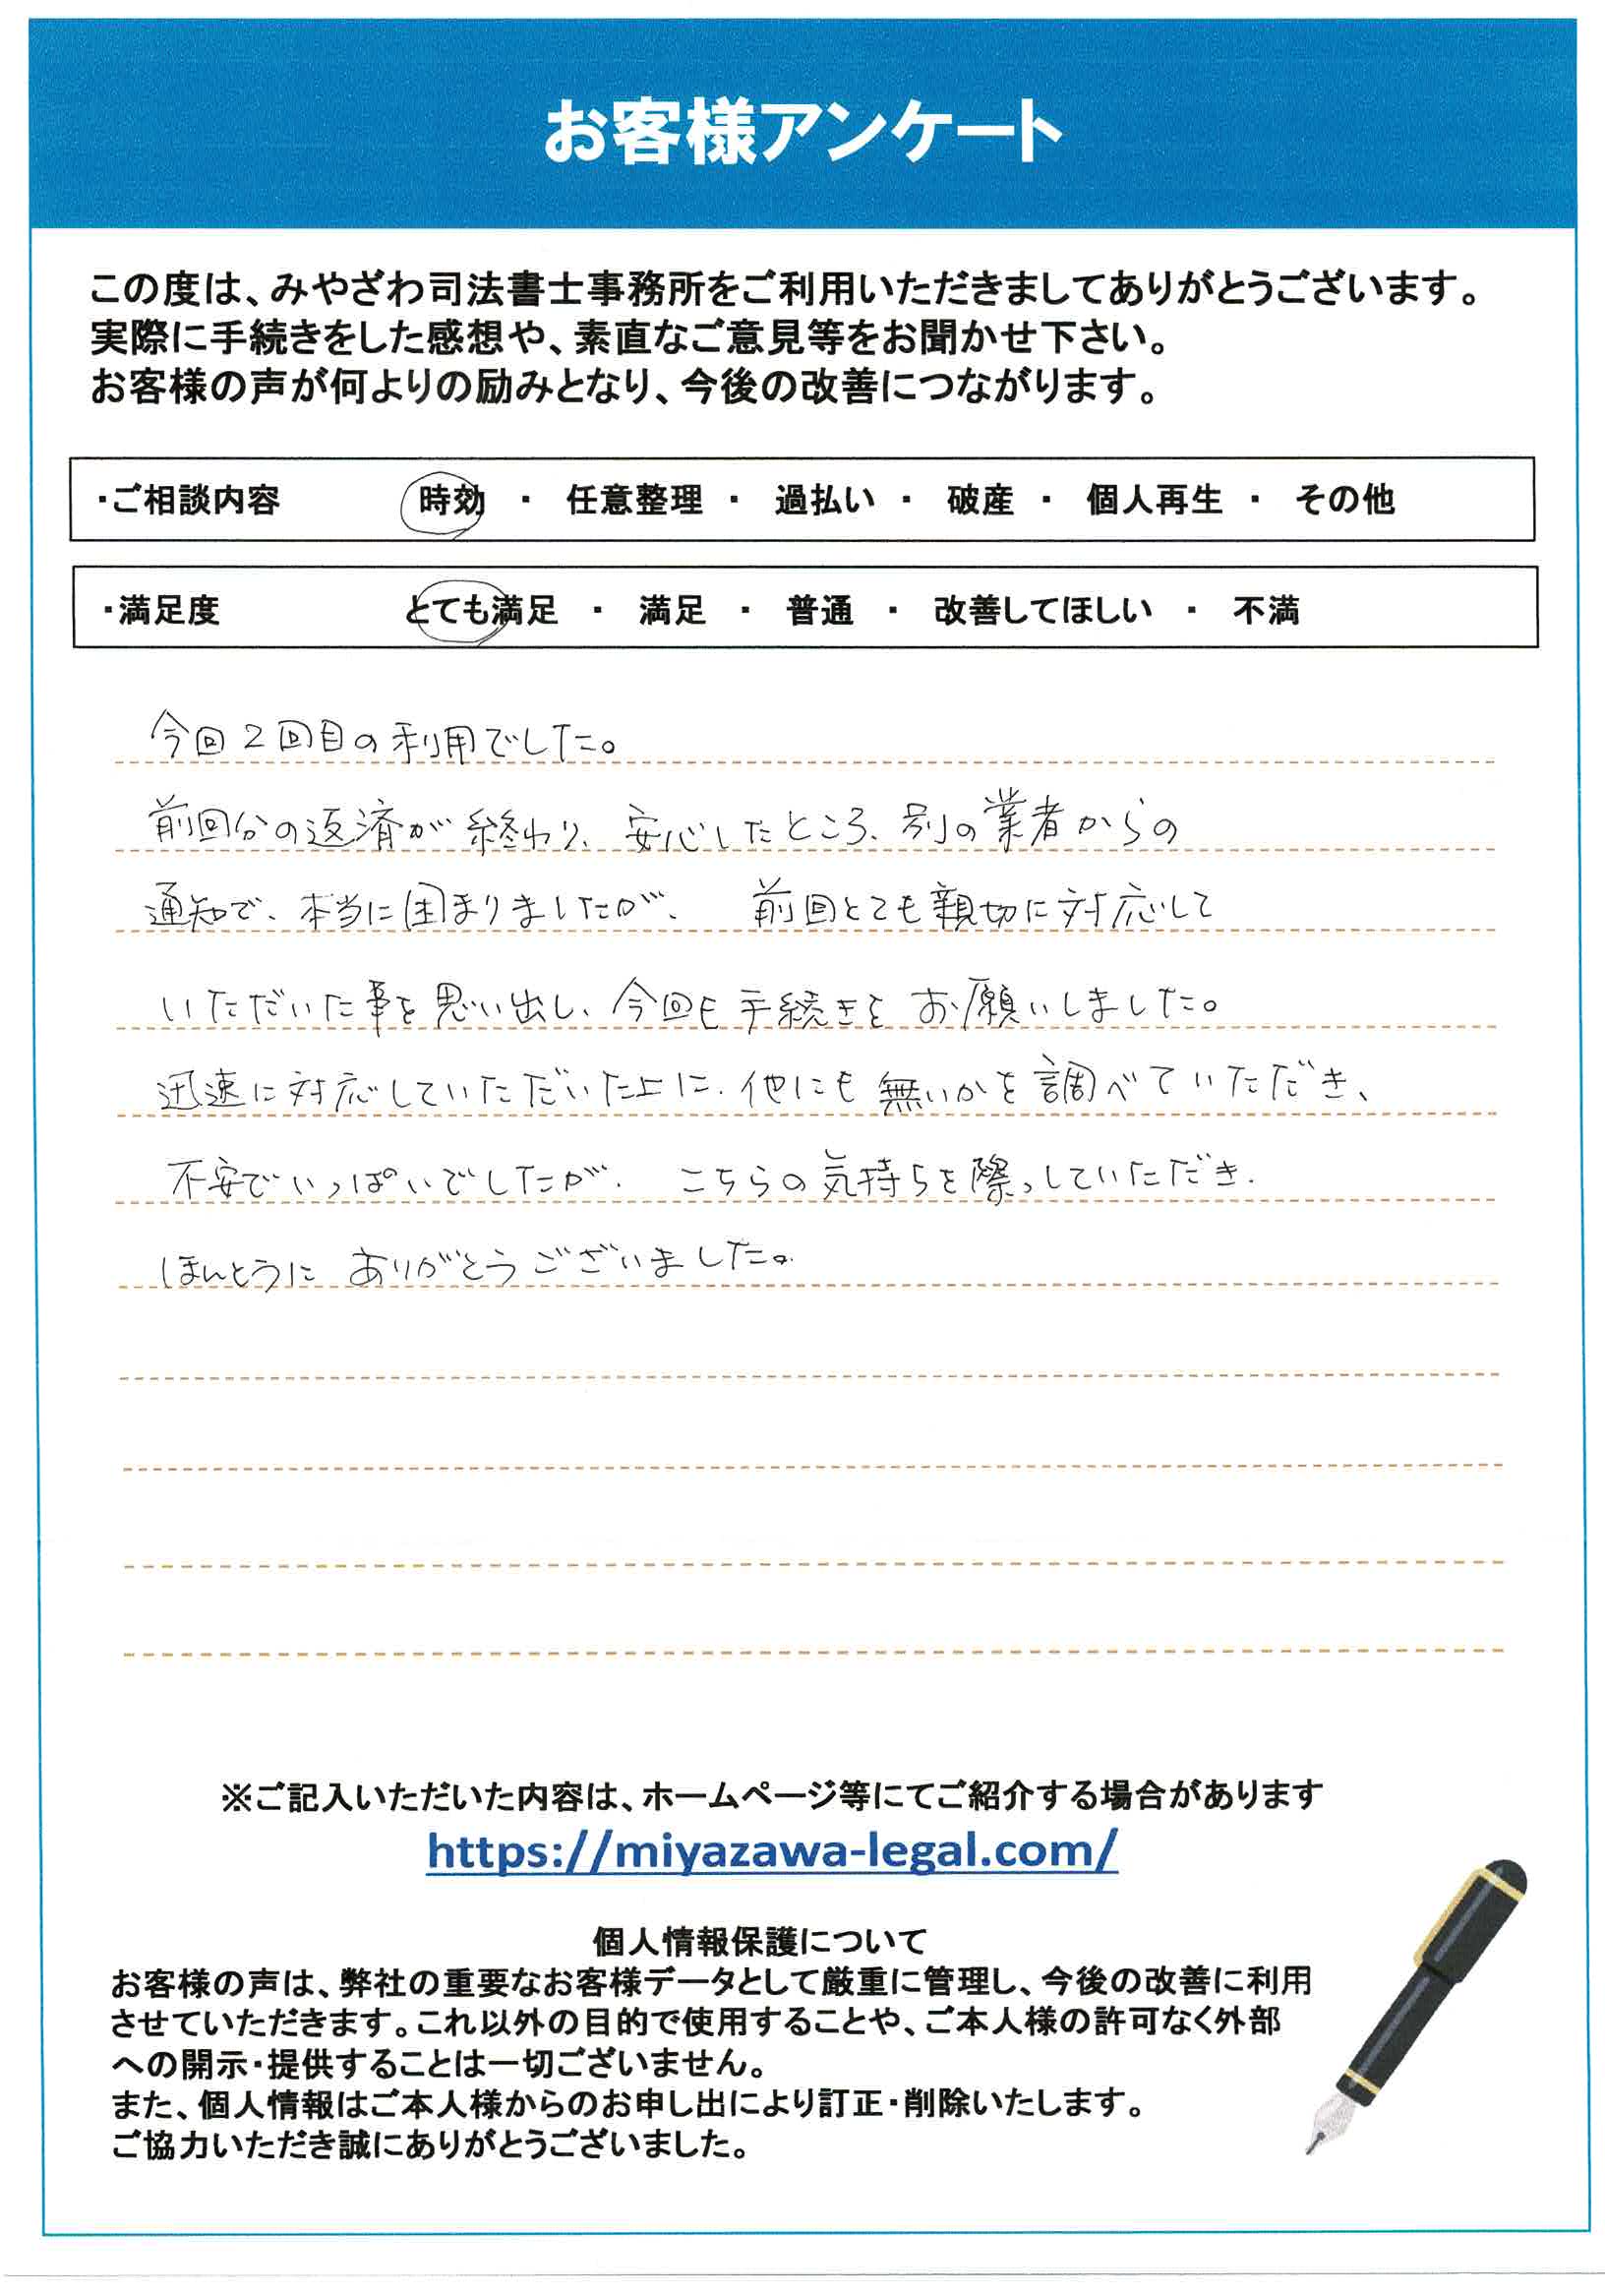 お客様アンケート
この度は、みやざわ司法書士事務所をご利用いただきましてありがとうございます。
実際に手続きをした感想や、素直なご意見等をお聞かせ下さい。
お客様の声が何よりの励みとなり、今後の改善につながります。
・ご相談内容 時効 ・ 任意整理 ・ 過払い ・ 破産 ・ 個人再生 ・ その他
・満足度 とても満足 ・ 満足 ・ 普通 ・ 改善してほしい ・ 不満
今回2回目の利用でした。
前回分の返済が終わり、安心したところ、別の業者からの
通知で、本当に困まりましたが、前回とても親切に対応して
いただいた事を思い出し、今回も手続きをお願いしました。
迅速に対応していただいた上に、他にも無いかを調べていただき、
不安でいっぱいでしたが、こちらの気持ちをっしていただき、
ほんとうにありがとうございました。
※ご記入いただいた内容は、ホームページ等にてご紹介する場合があります
https://miyazawa-legal.com/
個人情報保護について
お客様の声は、弊社の重要なお客様データとして厳重に管理し、今後の改善に利用
させていただきます。これ以外の目的で使用することや、ご本人様の許可なく外部
への開示・提供することは一切ございません。
また、個人情報はご本人様からのお申し出により訂正・削除いたします。
ご協力いただき誠にありがとうございました。